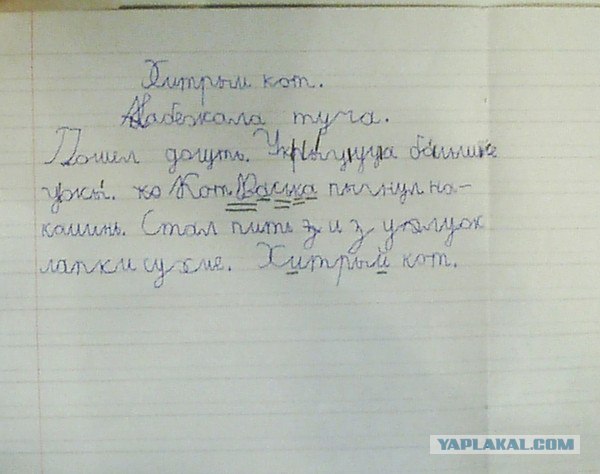 Хитрым кот.
Набежала туча.
Пошел дощть. Укрыцуца большие
ужы. ко Кот Васька пыгнул на-
каминь. Стал пить з и з углуок
лапки сухие. Хитрый кот.
YAPLAKAL.COM